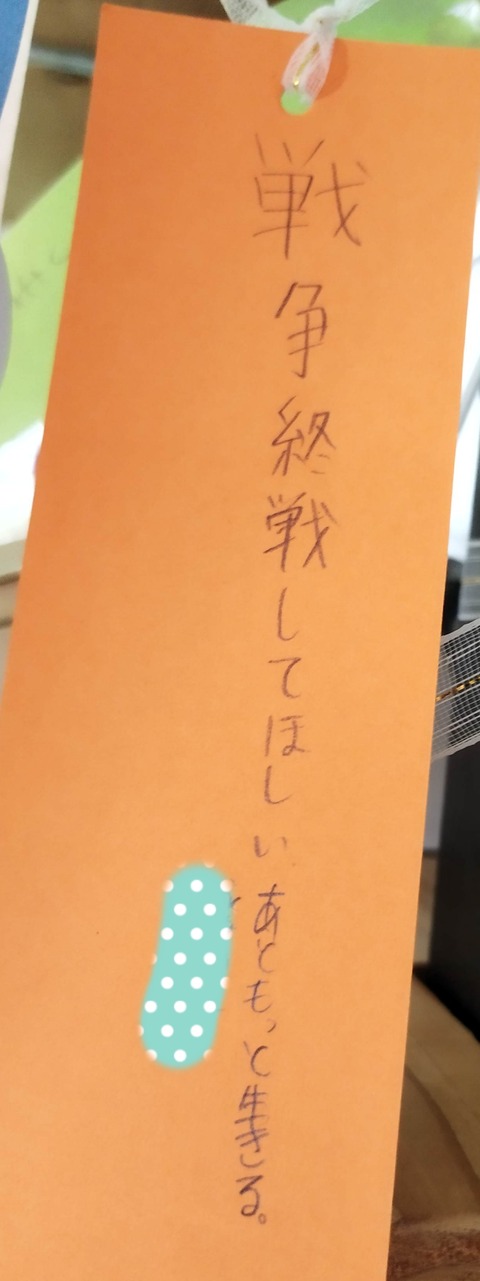 戦争終戦してほしいあともっと生きる。